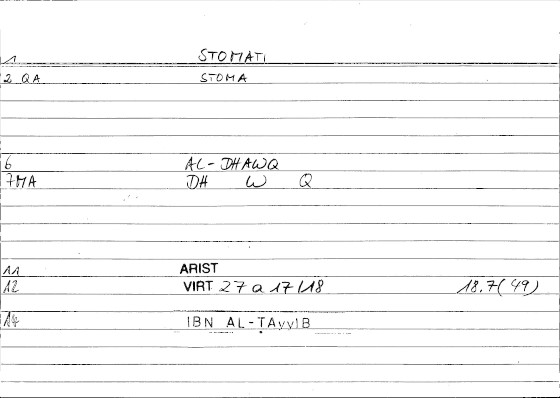 1 STOMATI
2 QA STOMA
6 AL-DHAWQ
7MA DH W Q
11 ARIST
12 VIRT 27 a 17/18 18.7(49)
14 IBN AL-TAyyIB